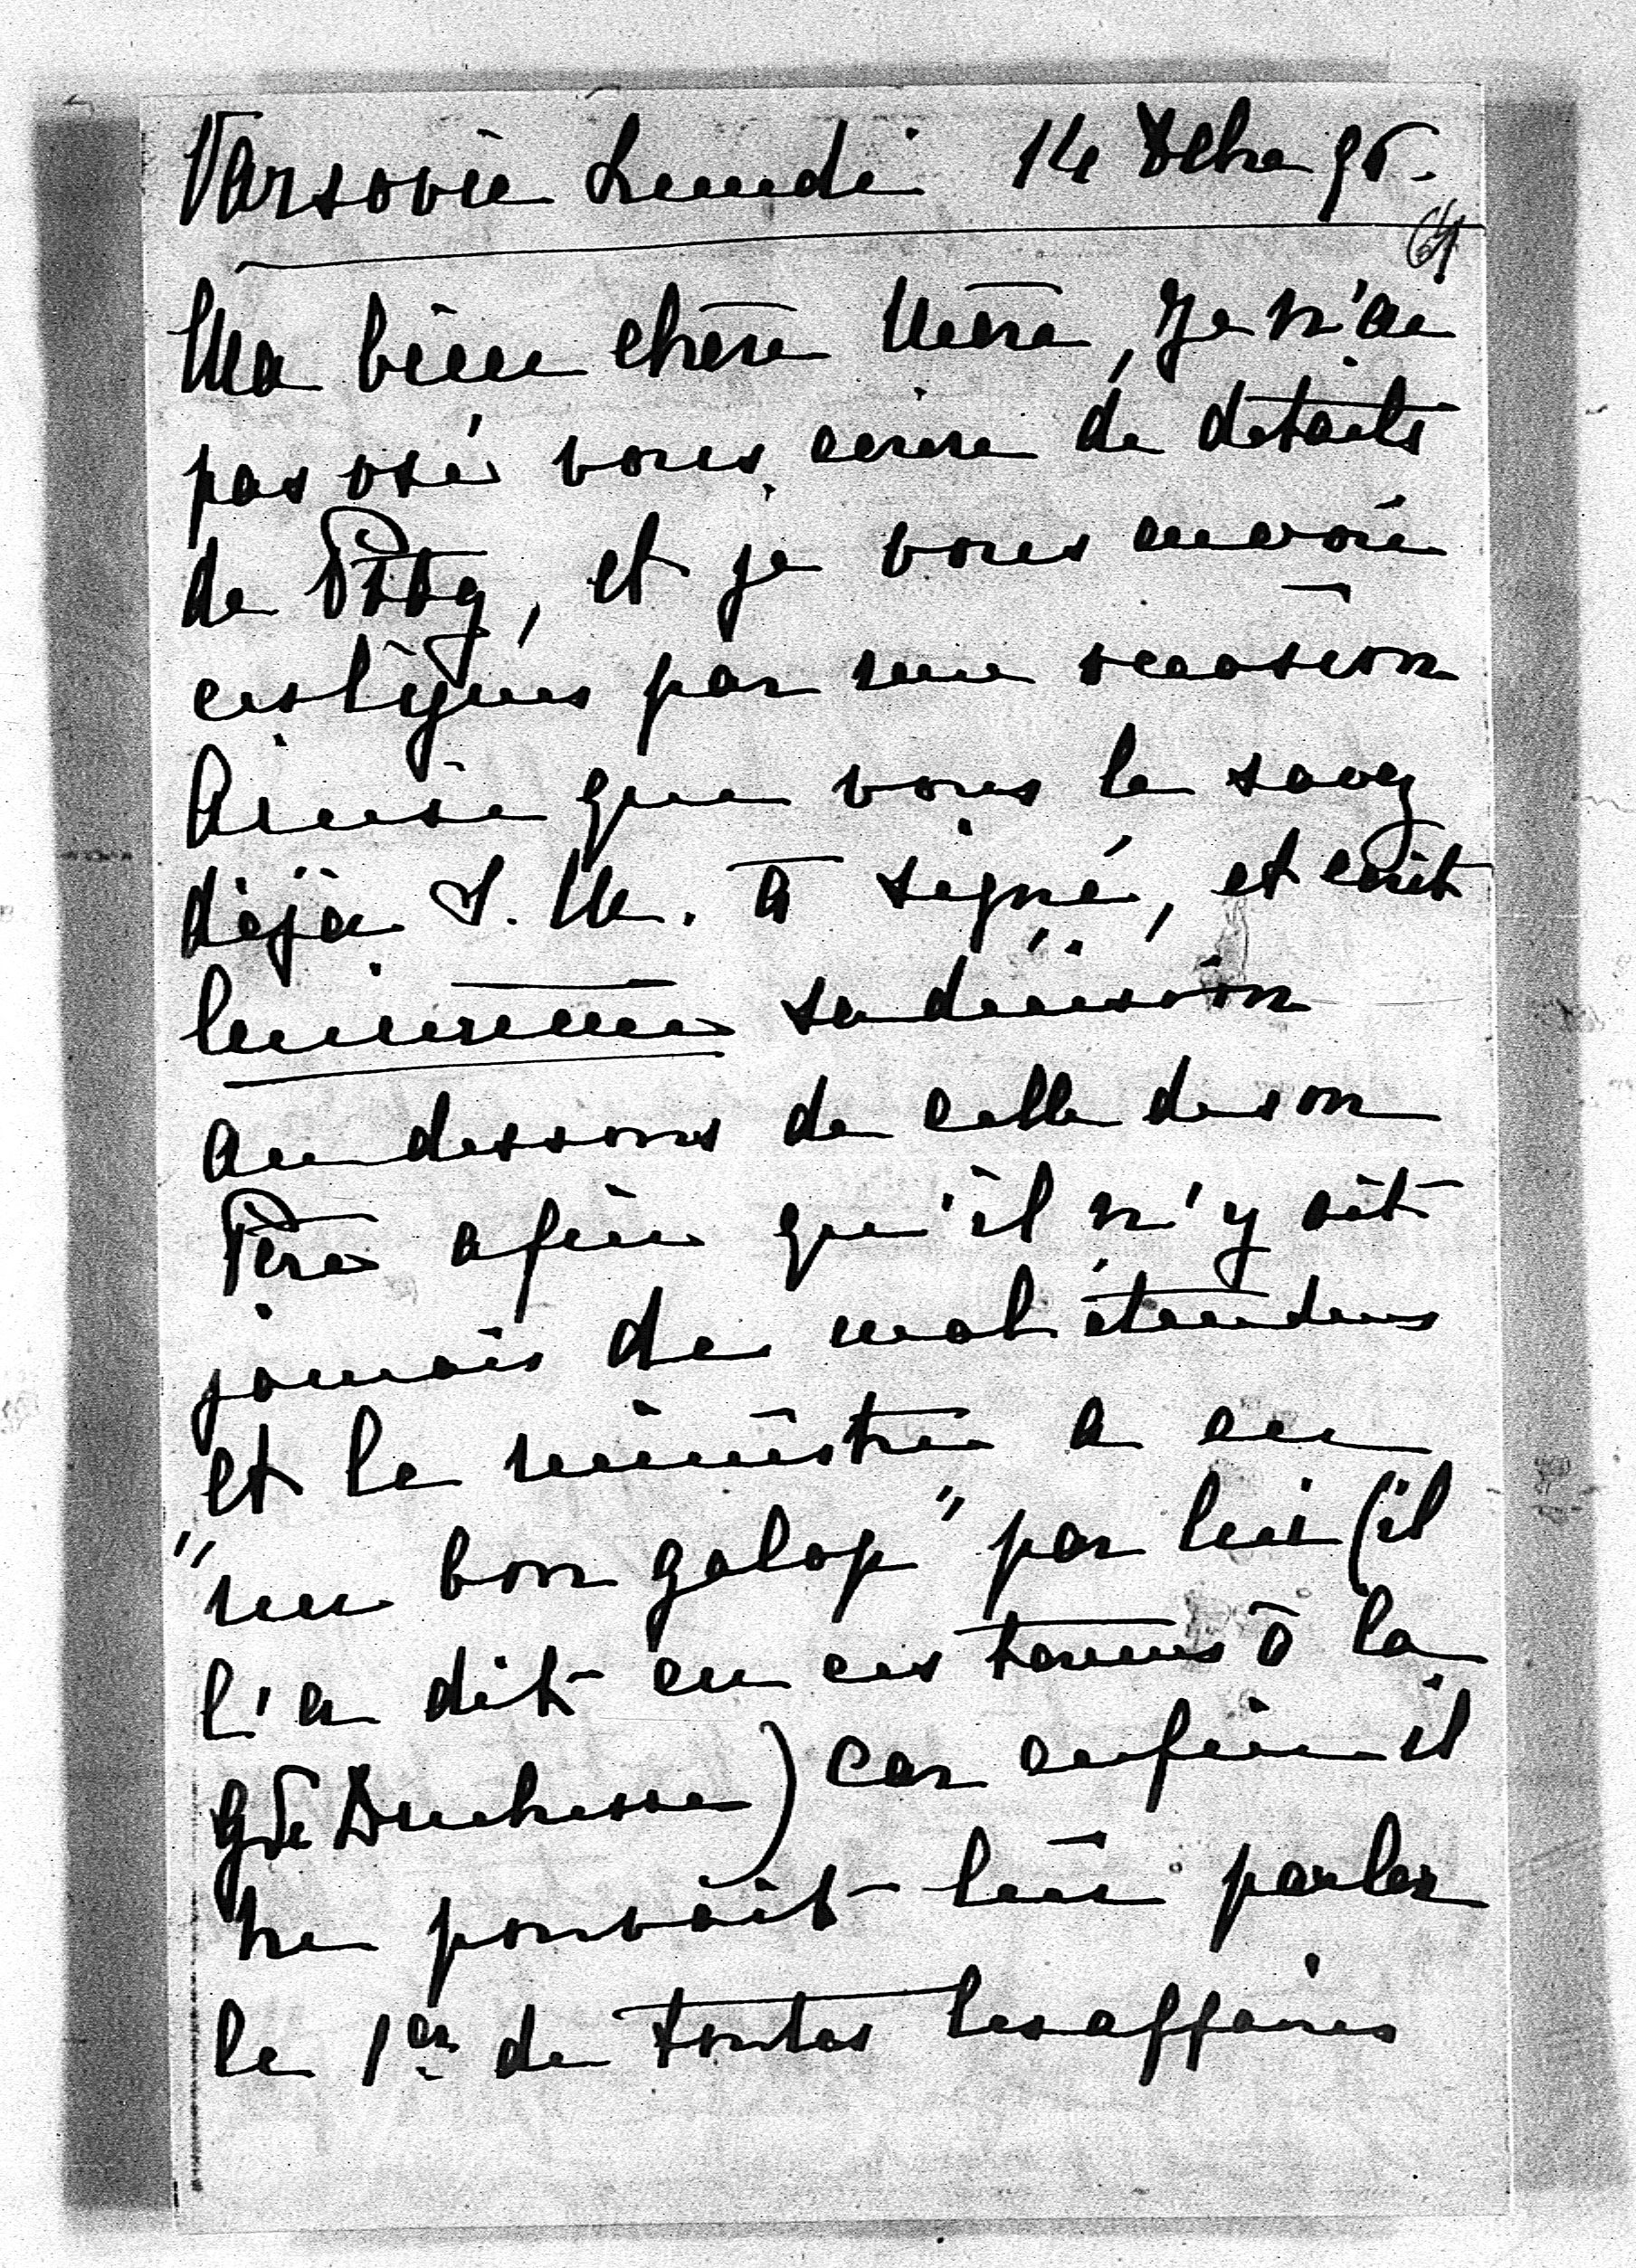 Varsovie Lundi 14 Xbre 96.
64
Ma bien chère Mère, Je n'ai
pas osé vous écrire de détails
de Pbg, et je vous envoie
ces lignes par une occasion
Ainsi que vous le savez
déjà S. M. a signé, et écrit
lui même sa décision
au dessous de celle de son
Père afin qu'il n'y ait
jamais de mal étendus
et le ministre a eu
"un bon galop" par lui (il
l'a dit en ces termes à la
Gde Duchesse) car enfin il
ne pouvait lui parler
le 1er de toutes les affaires